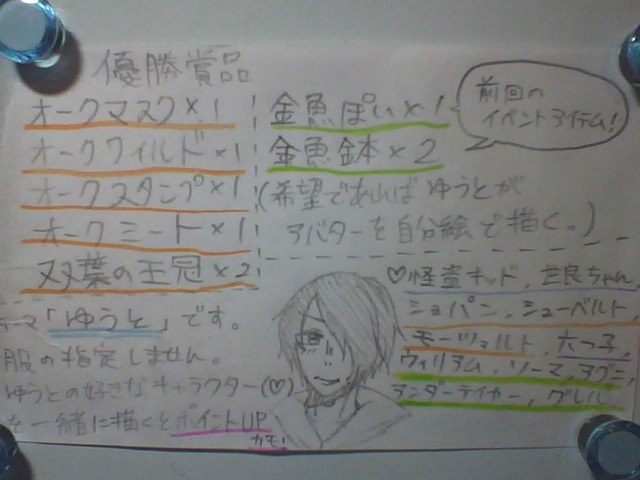 優勝賞品
オークマスク×1
オークワイルド×1
オークスタンプ×1
オークミート×1
双葉の王冠×2
金魚ぽい×1
金魚金本×2
(希望であればゆうとが
アバターを自分絵で描く。)
前回の
イベントアイテム!
テーマ「ゆうと」です。
服の指定しません。
ゆうとの好きなキャラクター(♡)
を一緒に描くとポイントUP
カモ!
♡怪盗キッド、世良ちゃん、
ショパン、シューベルト、
モーツァルト、六つ子、
ウィリアム、ソーマ、アグニ、
アンダーテイカー、グレル